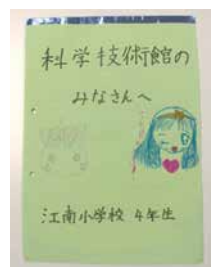 科学技術館の
みなさんへ
江南小学校 4年生